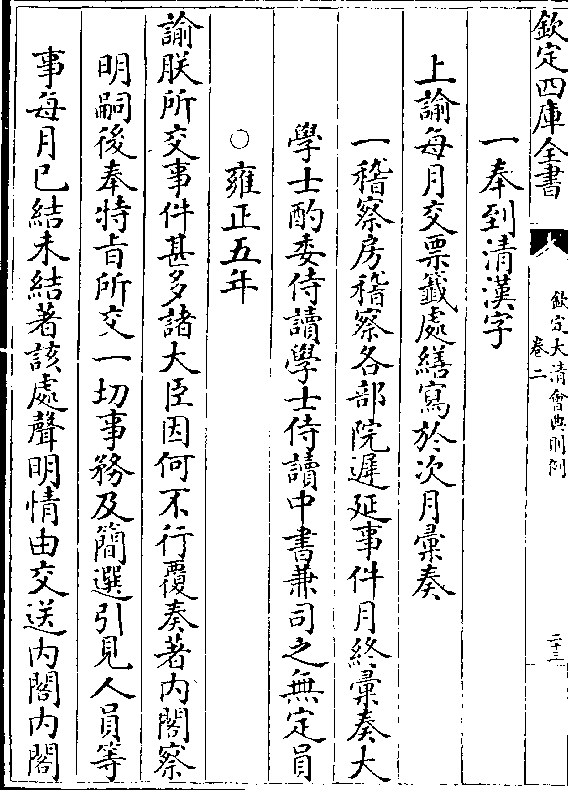 欽定四庫全書
欽定大清會典則例
卷二
二十三
一奉到清漢字
上諭每月交票籤處繕寫於次月彙奏
一稽察房稽察各部院遲延事件月終彙奏大
學士酌委侍讀學士侍讀中書兼司之無定員
○雍正五年
諭朕所交事件甚多諸大臣因何不行覆奏著內閣察
明嗣後奉特㫖所交一切事務及簡選引見人員等
事每月已結未結著該處聲明情由交送内閣内閣